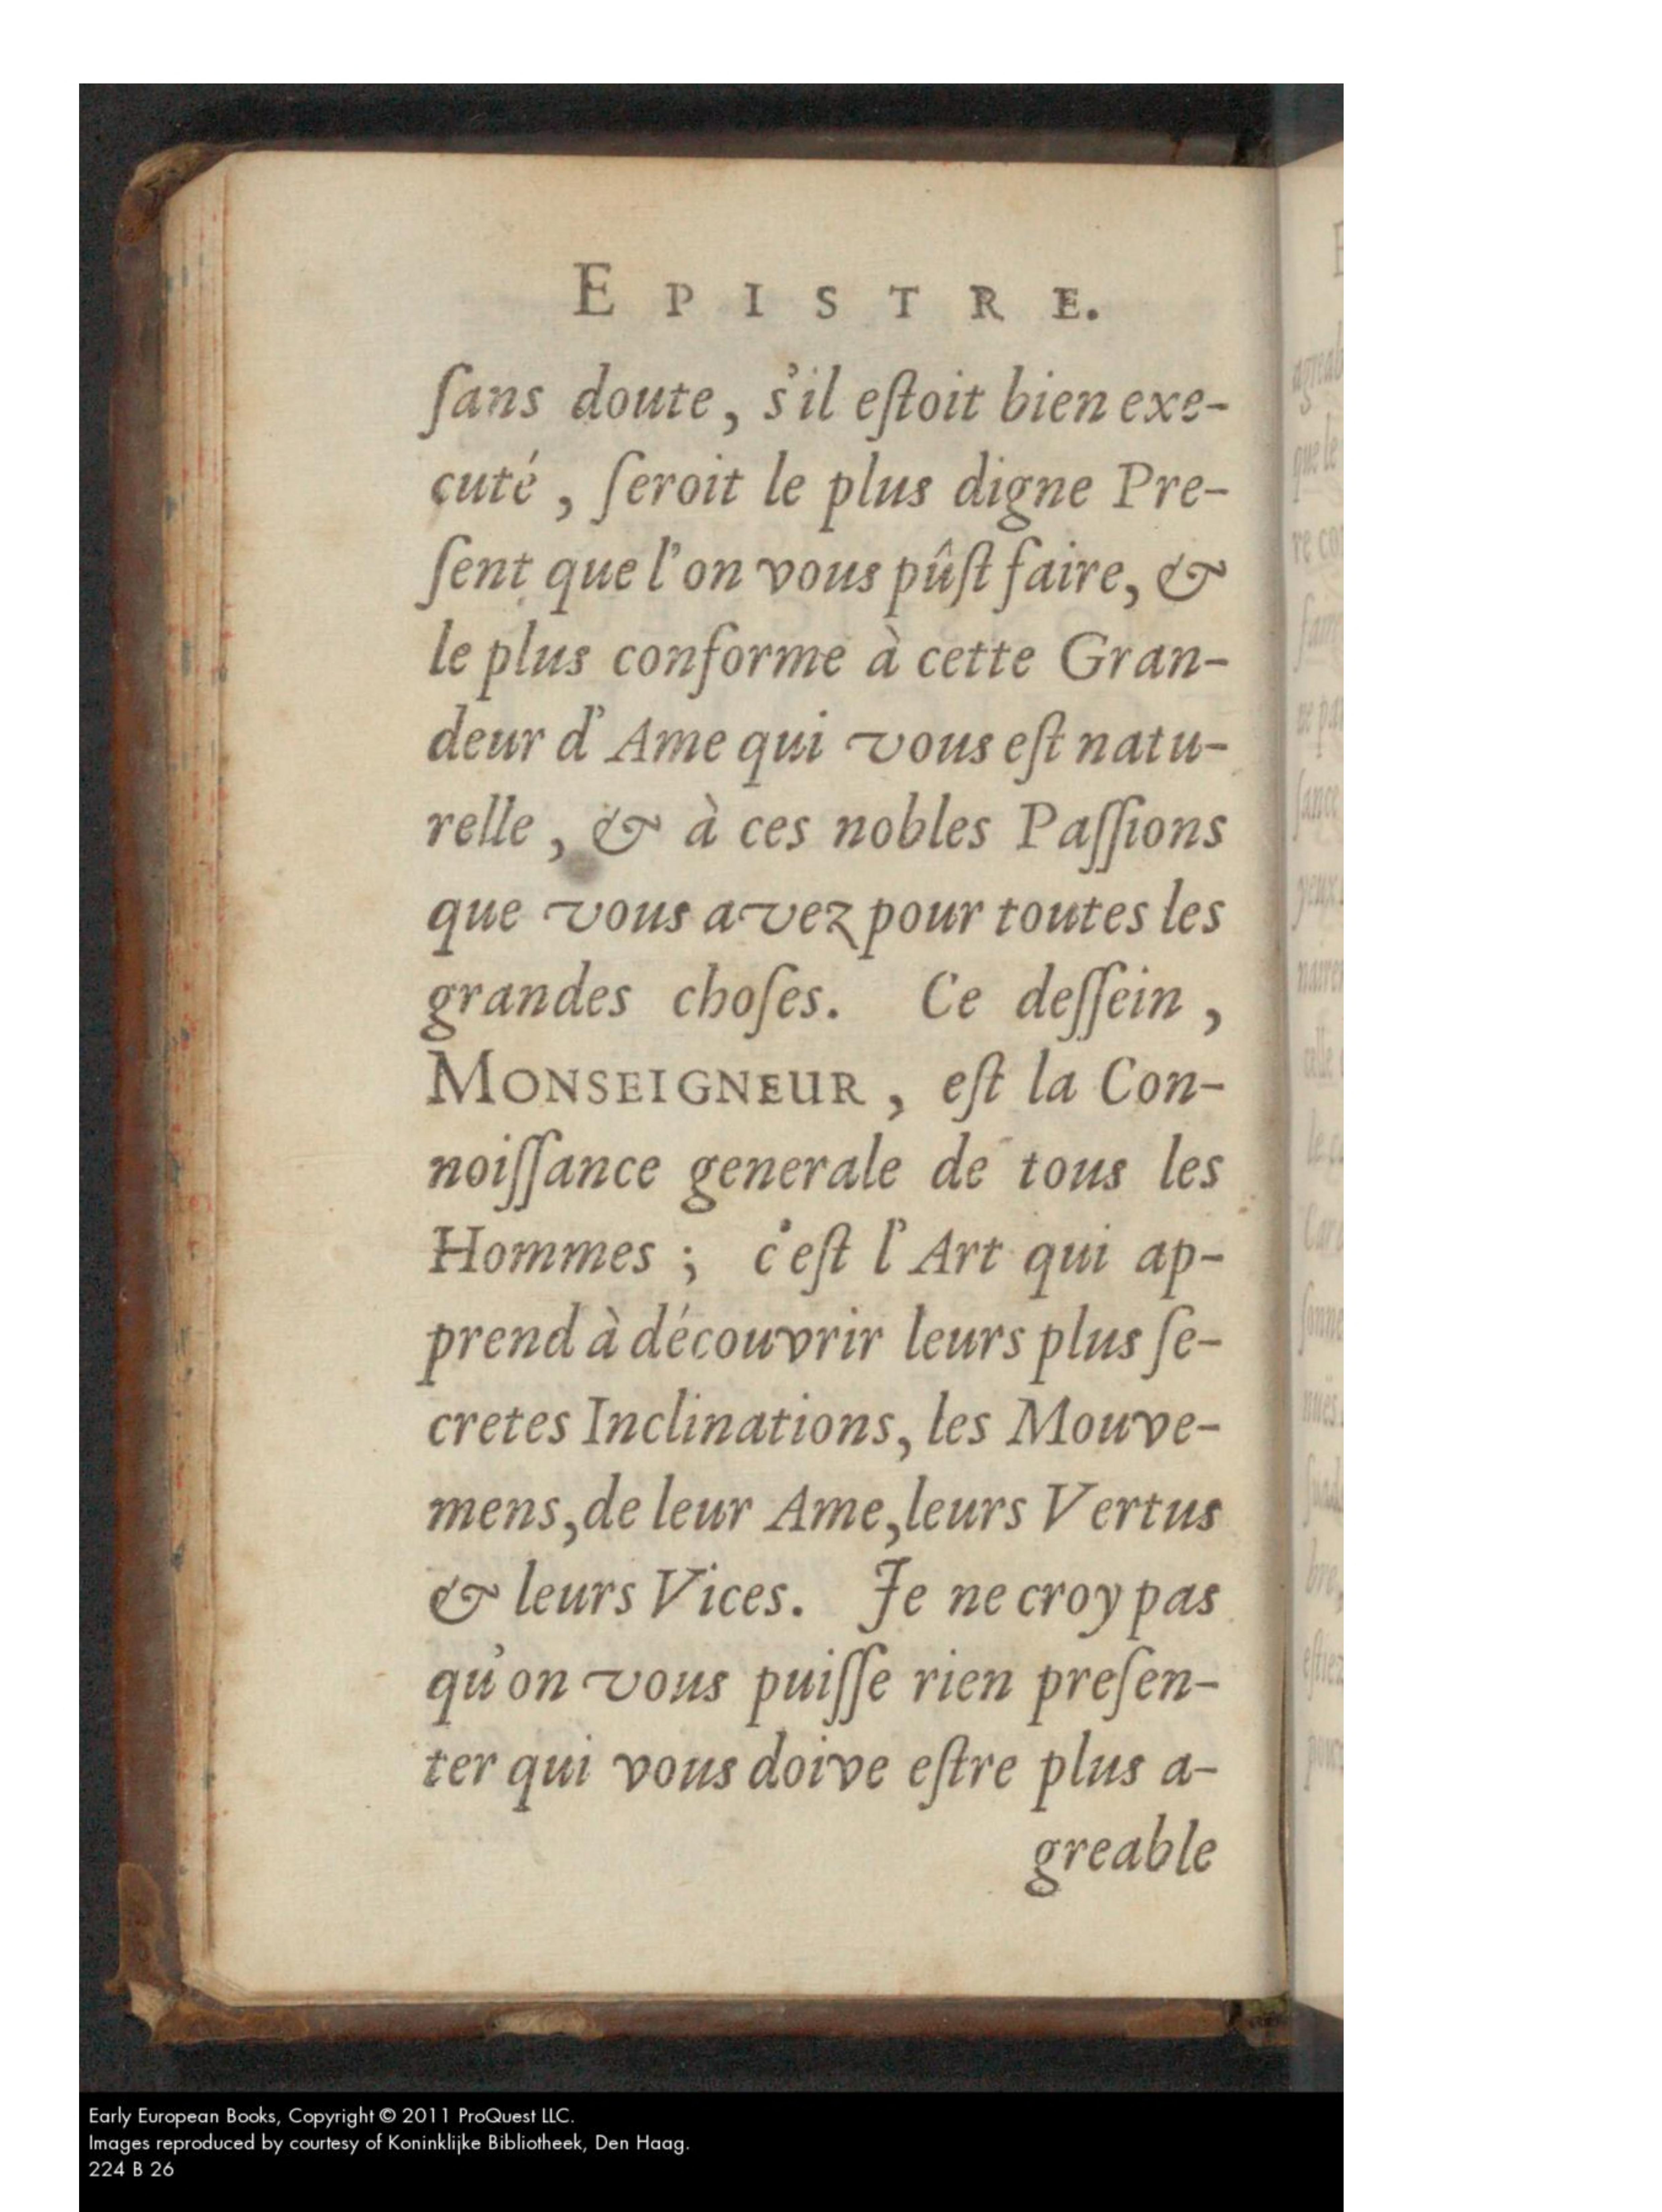 EPISTRE.
ſans doute, s'il eſtoit bien exe-
cuté, ſeroit le plus digne Pre-
ſent que l'on vous pûſt faire, &
le plus conforme à cette Gran-
deur d'Ame qui vous eſt natu-
relle, & à ces nobles Paſſions
que vous avez pour toutes les
grandes choſes. Ce deſſein,
MONSEIGNEUR, eſt la Con-
noiſſance generale de tous les
Hommes; c'eſt l'Art qui ap-
prend à découvrir leurs plus ſe-
cretes Inclinations, les Mouve-
mens, de leur Ame, leurs Vertus
& leurs Vices. Je ne croy pas
qu'on vous puiſſe rien preſen-
ter qui vous doive eſtre plus a-
greable
Early European Books, Copyright © 2011 ProQuest LLC.
Images reproduced by courtesy of Koninklijke Bibliotheek, Den Haag.
224 B 26